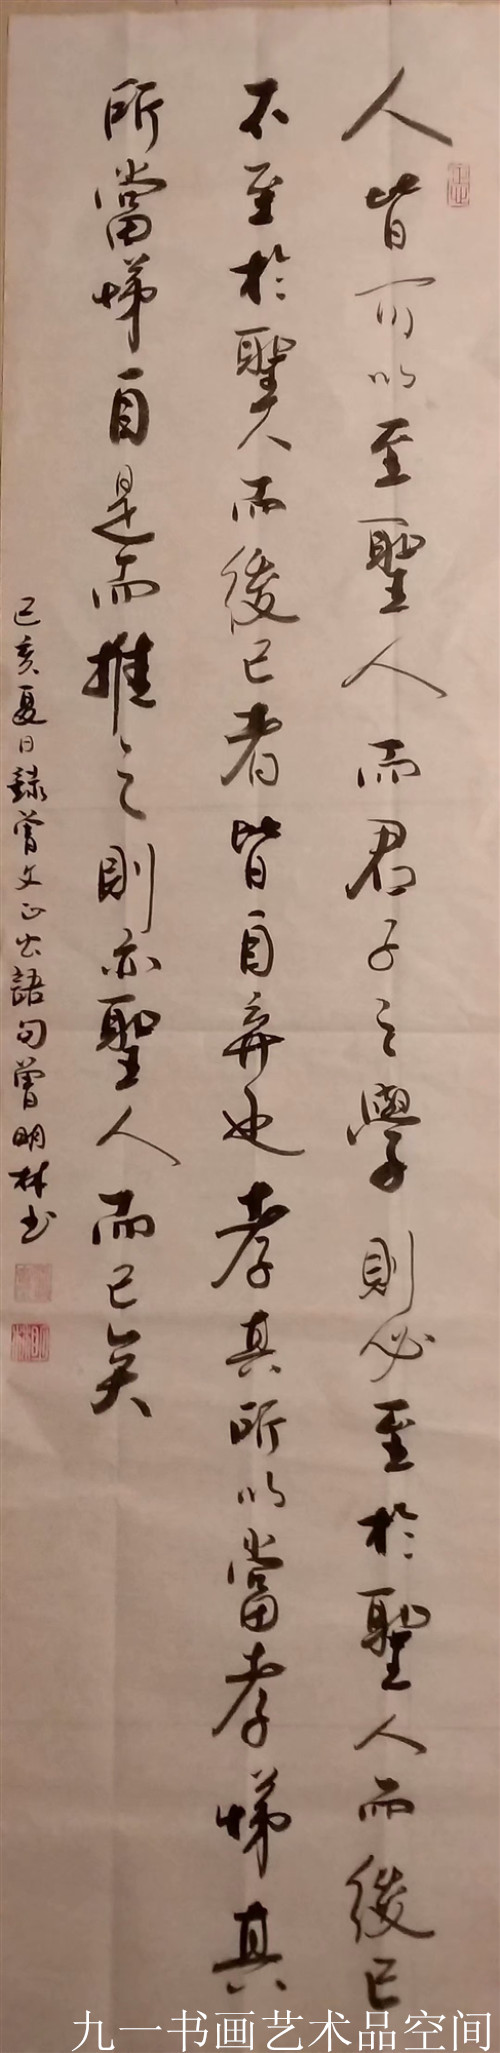 人皆可以至聖人而君子之學則必至於聖人而後已
不至於聖人而後已者皆自弃也孝其所以當孝悌其
所當悌自是而推之則亦聖人而已矣
己亥夏日録曾文正公語句曾明林书
九一书画艺术品空间